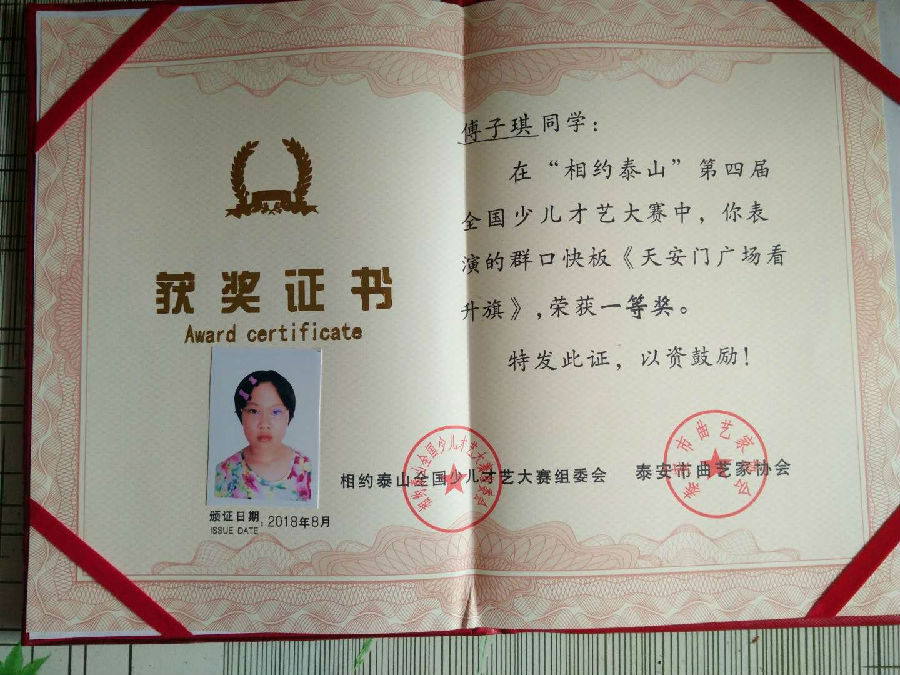 获奖证书
Award certificate
颁证日期
ISSUE DATE
:2018年8月
傅子琪同学：
在“相约泰山”第四届
全国少儿才艺大赛中，你表
演的群口快板《天安门广场看
升旗》，荣获一等奖。
特发此证，以资鼓励！
相约泰山全国少儿才艺大赛组委会
泰安市曲艺家协会
相约泰山全国少儿才艺大赛组委会
泰安市曲艺家协会